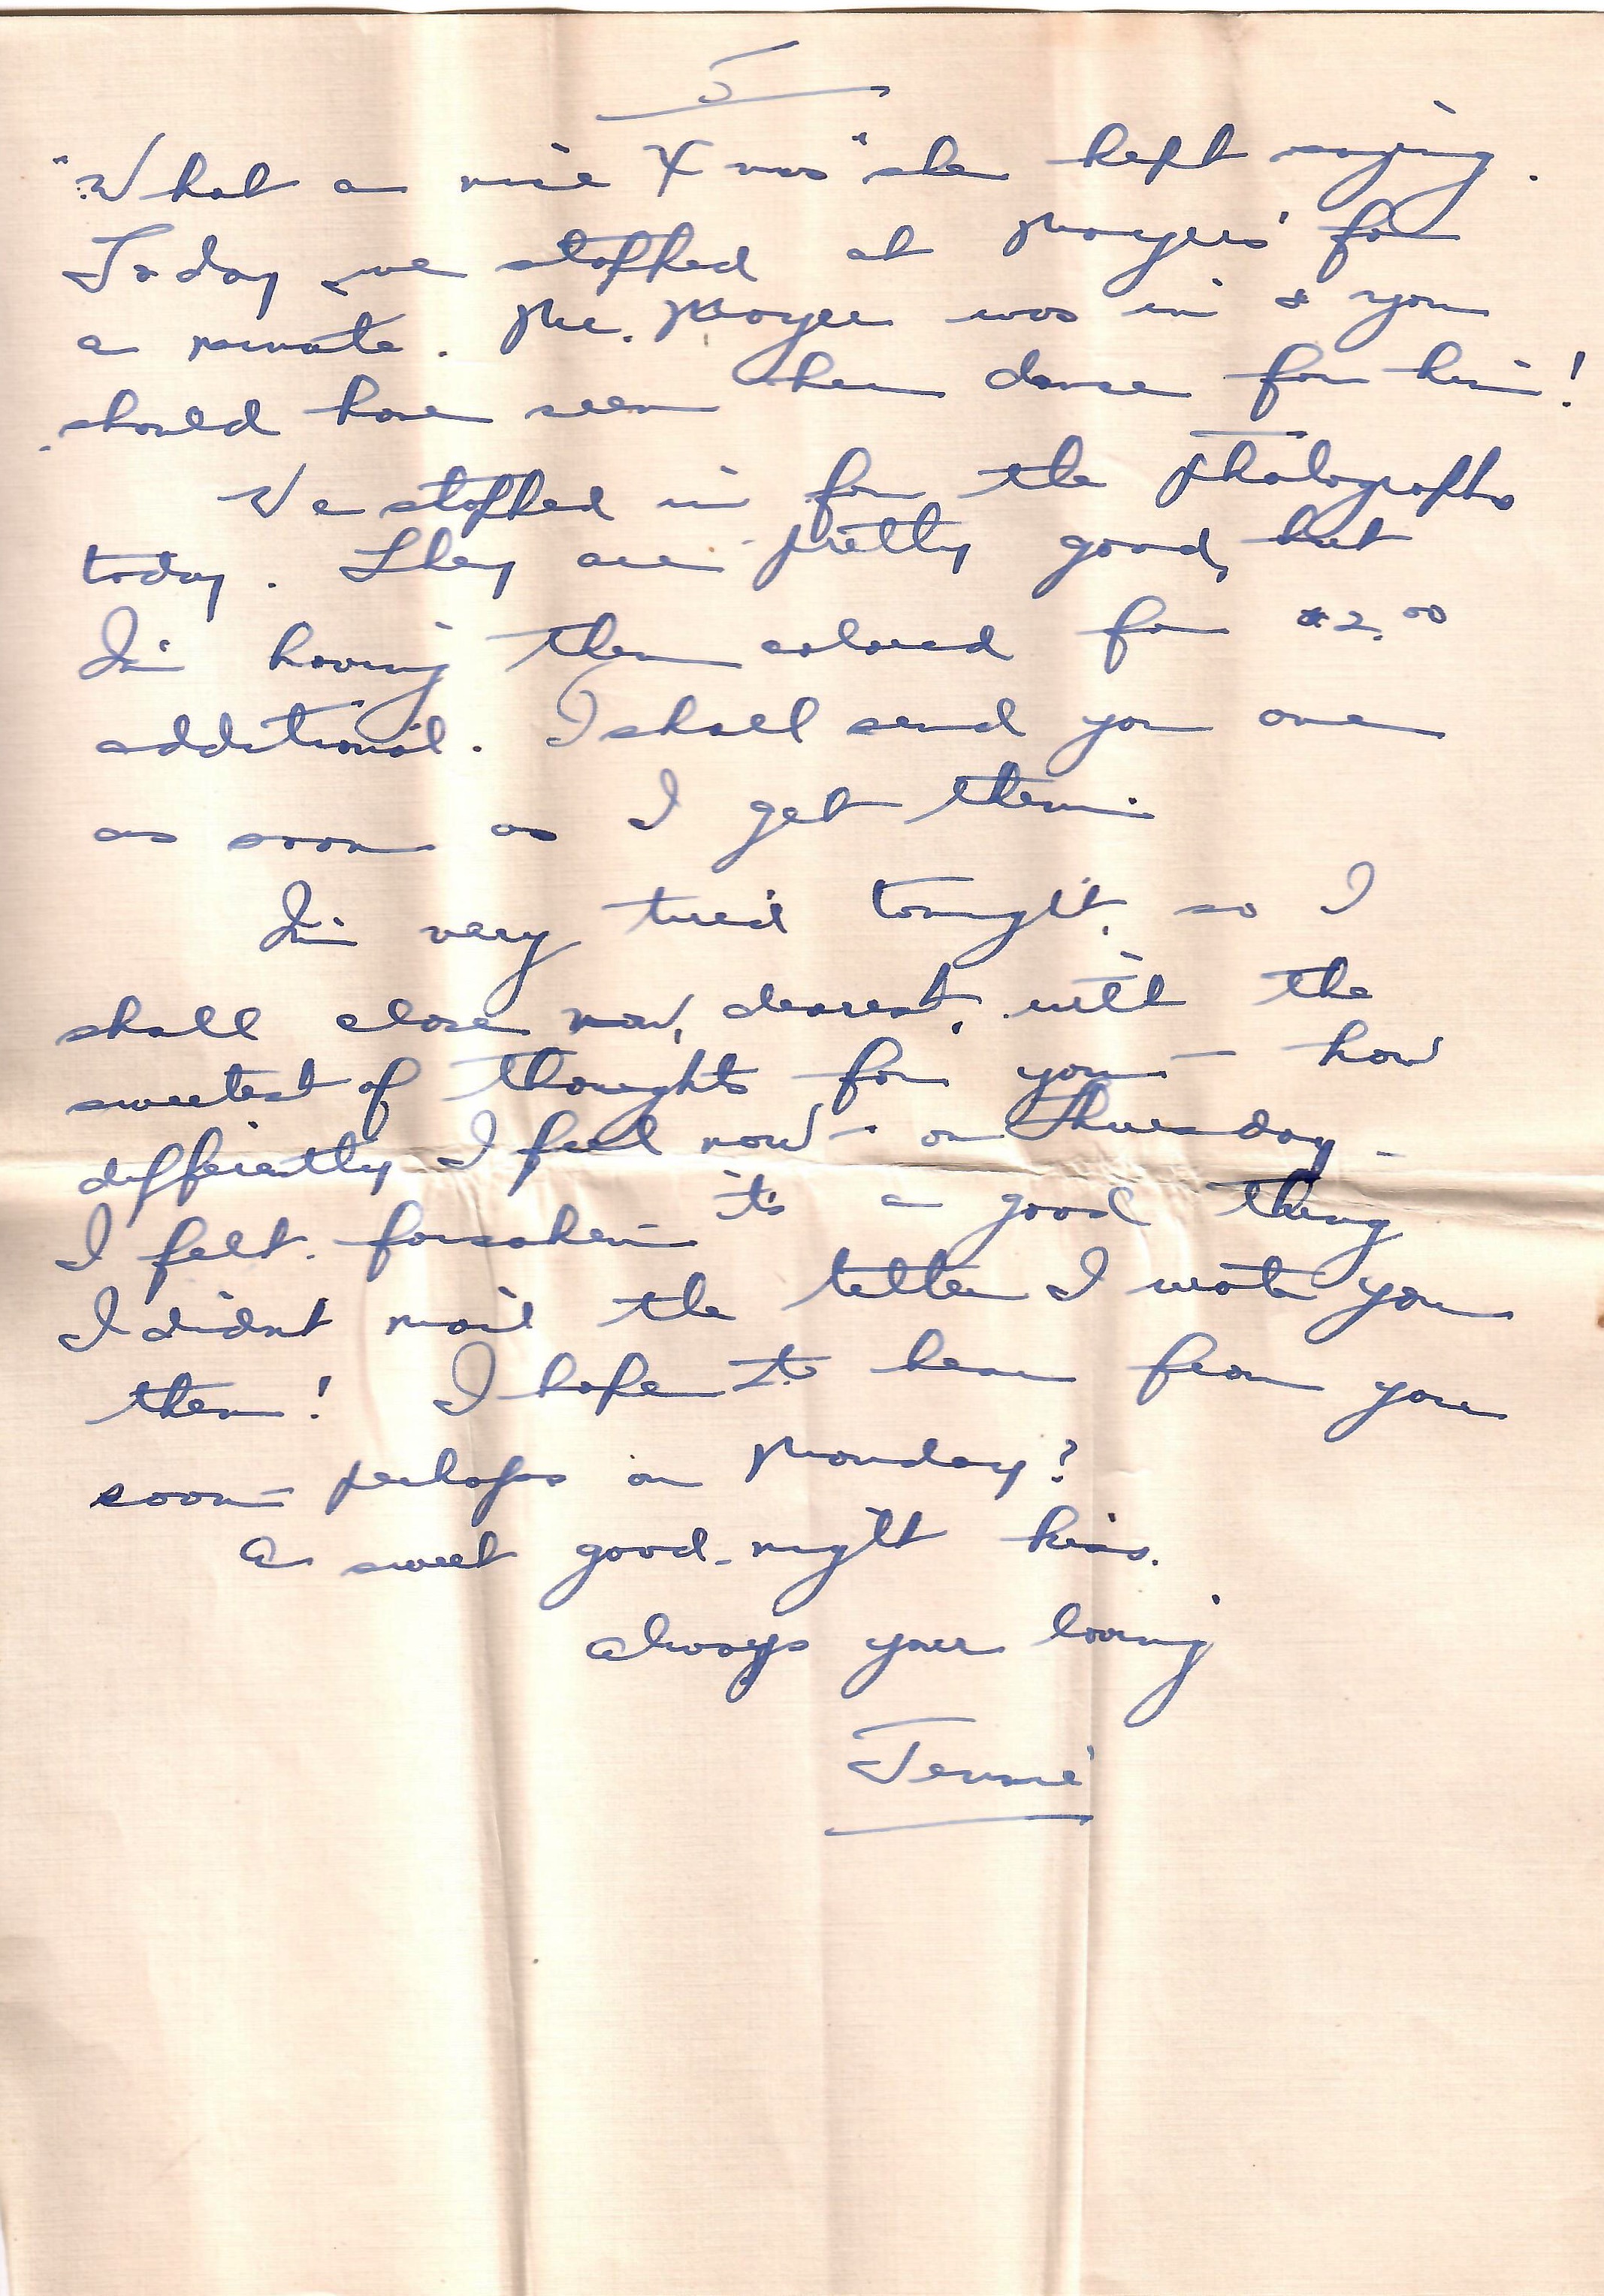 5
"What a nice Xmas" she kept saying.
Today we stopped at Moyers' for
a minute. Mr. Moyer was in & you
should have seen her dance for him!
We stopped in for the photographs
today. They are pretty good, but
I'm having them colored for $2.00
additional. I shall send you one
as soon as I get them.
I'm very tired tonight, so I
shall close now, dearest, with the
sweetest of thoughts for you — how
differently I feel now — on Thursday
I felt forsaken — it's a good thing
I didn't mail the letter I wrote you
then! I hope to hear from you
soon — perhaps on Monday?
A sweet good-night kiss.
Always your loving
Jennie